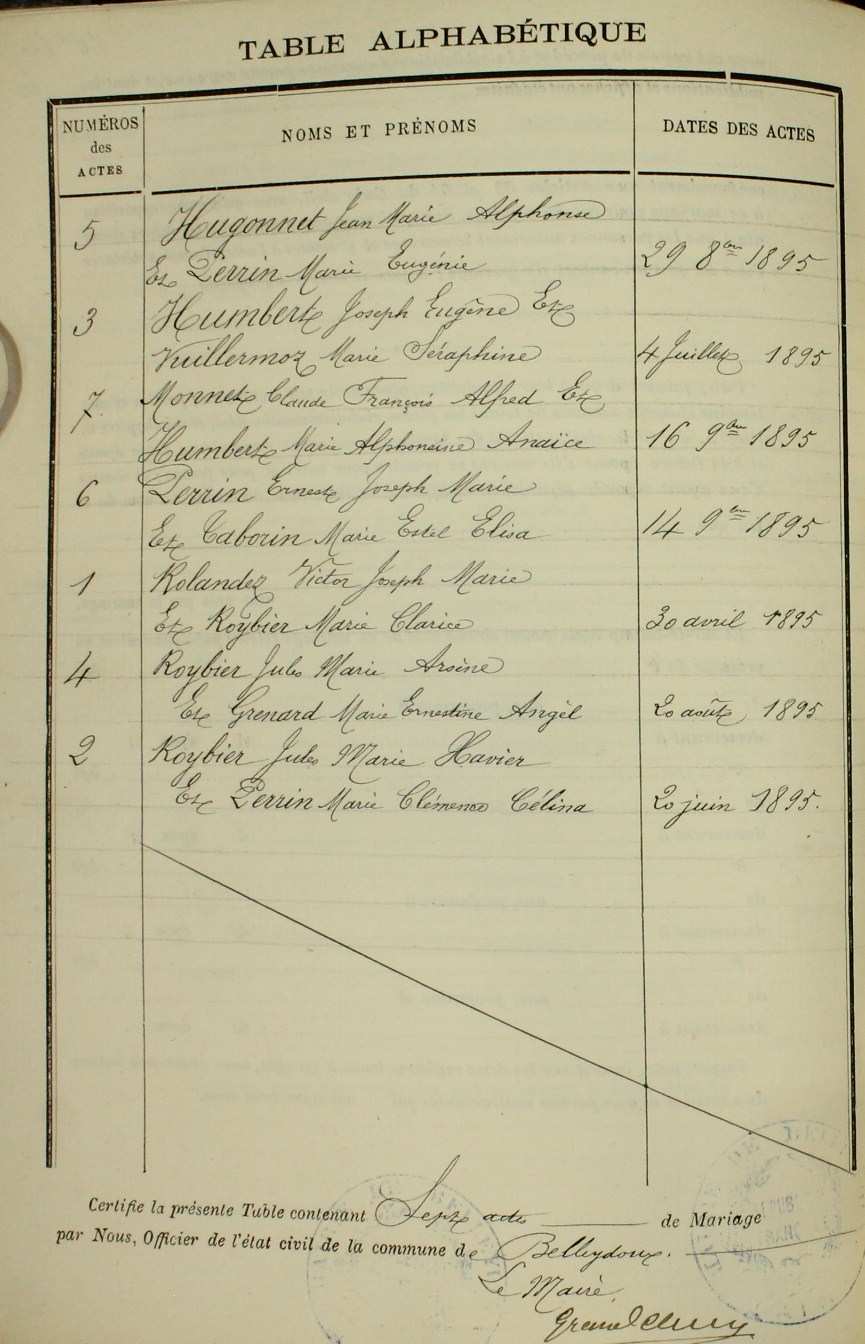 TABLE ALPHABÉTIQUE
NUMÉROS des ACTES NOMS ET PRÉNOMS DATES DES ACTES
5 Hugonnet Jean Marie Alphonse
Et Perrin Marie Eugénie 29 8bre 1895
3 Humbert Joseph Eugène Et
Vuillermoz Marie Séraphine 4 Juillet 1895
7. Monnet Claude François Alfred Et
Humbert Marie Alphonsine Anaïce 16 9bre 1895
6 Perrin Ernest Joseph Marie
Et Taborin Marie Estel Elisa 14 9bre 1895
1 Rolandez Victor Joseph Marie
Et Roybier Marie Clarice 30 avril 1895
4 Roybier Jules Marie Arsène
Et Grenard Marie Ernestine Angèl 20 août 1895
2 Roybier Jules Marie Xavier
Et Perrin Marie Clémence Célina 20 juin 1895.
Certifie la présente Table contenant Sept actes de Mariage
par Nous, Officier de l'état civil de la commune de Belleydoux.
Le Maire,